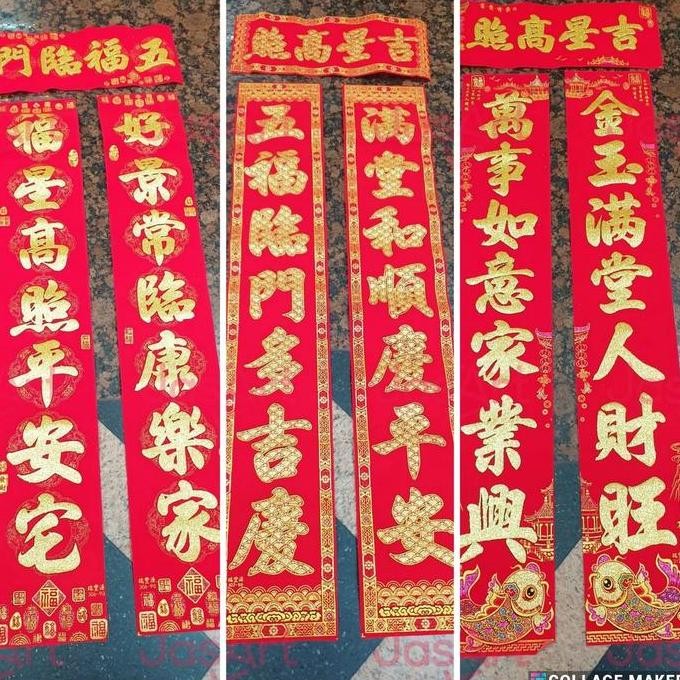 五福臨門
好景常臨康樂家
福星高照平安宅
福
吉星高照
满堂和順慶平安
五福臨門多吉慶
吉星高照
金玉满堂人財旺
萬事如意家業興
JasArt
COLLAGE MAKER